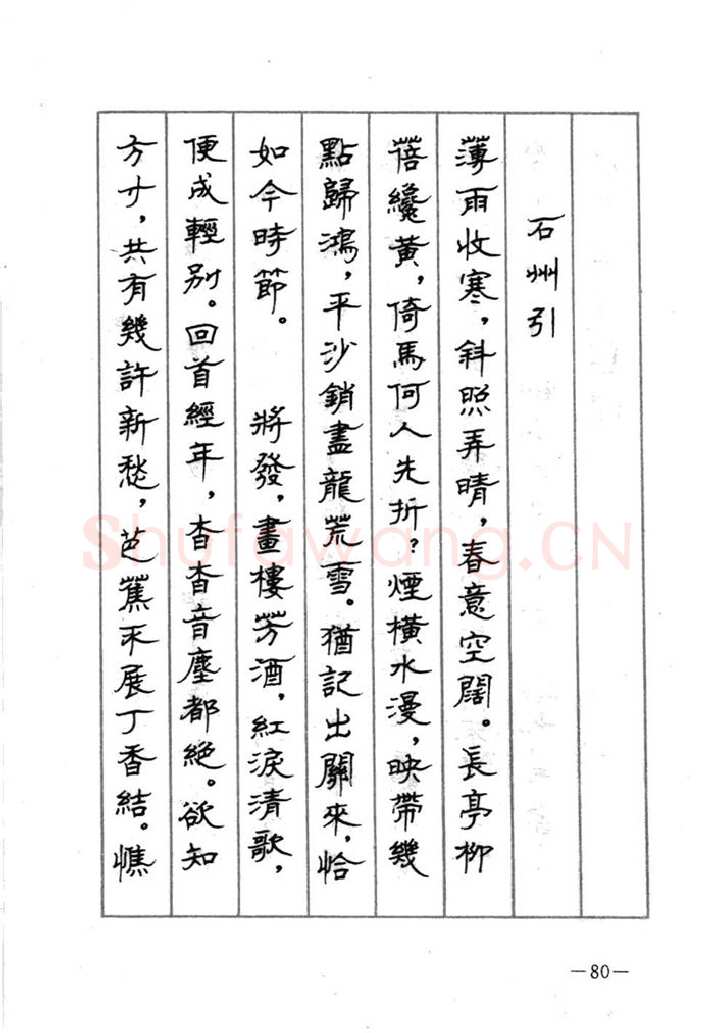 石州引
薄雨收寒，斜照弄晴，春意空闊。長亭柳
蓓纔黃，倚馬何人先折？煙橫水漫，映帶幾
點歸鴻，平沙銷盡龍荒雪。猶記出關來，恰
如今時節。　將發，畫樓芳酒，紅淚清歌，
便成輕別。回首經年，杳杳音塵都絕。欲知
方寸，共有幾許新愁，芭蕉不展丁香結。憔
Shufawang.CN
—80—